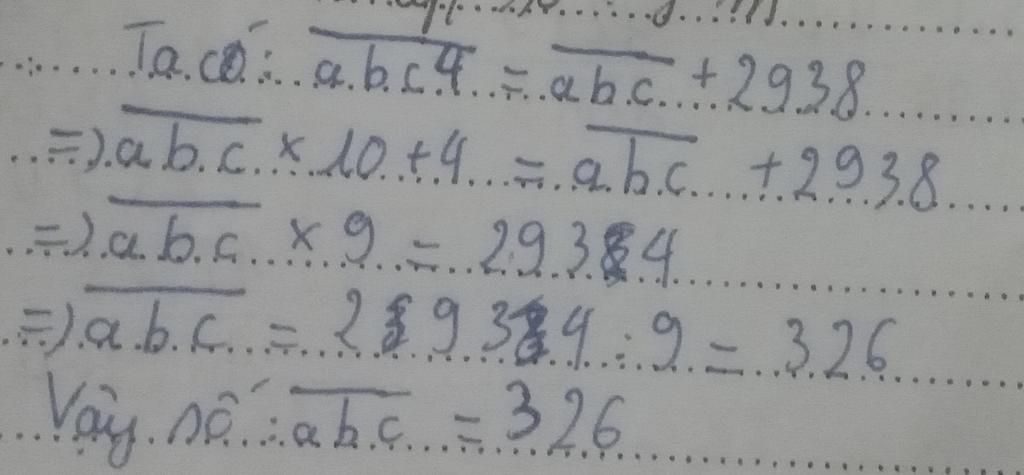 Ta có: abc4 = abc + 2938
=> abc × 10 + 4 = abc + 2938
=> abc × 9 = 2934
=> abc = 2934 : 9 = 326
Vậy số : abc = 326